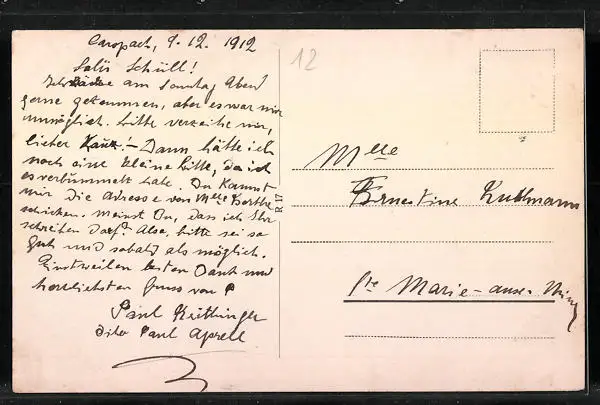 9.12. 1912
12
Salü Schüll!
am Sonntag Abend
gerne gekommen, aber es war mir
unmöglich. Bitte verzeihe mir,
lieber Kauz! – Dann hätte ich
noch eine kleine Bitte, da ich
es verbummelt habe. Du kannst
mir die Adresse von Melle Berthe
schicken. Meinst Du, dass ich Ihr
schreiben darf? Also, bitte sei so
gut und sobald als möglich.
Einstweilen besten Dank und
herzlichsten Gruss von
Paul
dito Paul
R 17
Mlle
Ernestine Kuhlmann
Ste Marie-aux-Mines